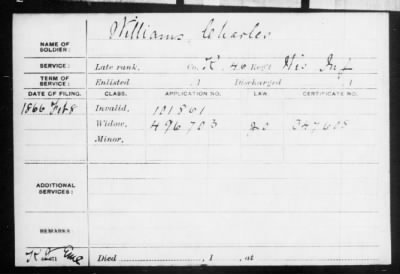 Williams, Charles
NAME OF SOLDIER:
SERVICE: Late rank, Co. K, 46 Reg't Wis Inf
TERM OF SERVICE: Enlisted , 1 Discharged , 1
DATE OF FILING. CLASS. APPLICATION NO. LAW. CERTIFICATE NO.
1866 Feb 8 Invalid, 101861
Widow, 496703 347605
Minor,
ADDITIONAL SERVICES:
REMARKS:
Died , 1 , at